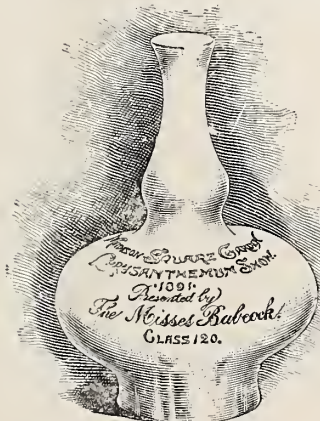 MADISON SQUARE GARDEN
CHRYSANTHEMUM SHOW.
·1891·
Presented by
The Misses Babcock.
CLASS 120.